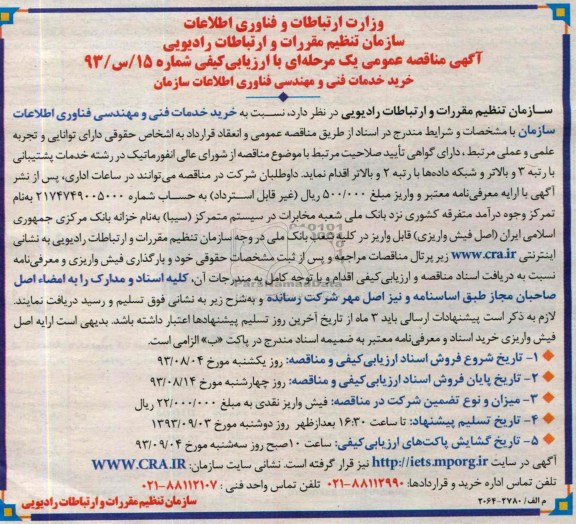 وزارت ارتباطات و فناوری اطلاعات
سازمان تنظیم مقررات و ارتباطات رادیویی
آگهی مناقصه عمومی یک مرحله‌ای با ارزیابی کیفی شماره ۱۵/س/۹۳
خرید خدمات فنی و مهندسی فناوری اطلاعات سازمان
سازمان تنظیم مقررات و ارتباطات رادیویی در نظر دارد، نسبت به خرید خدمات فنی و مهندسی فناوری اطلاعات
سازمان با مشخصات و شرایط مندرج در اسناد از طریق مناقصه عمومی و انعقاد قرارداد به اشخاص حقوقی دارای توانایی و تجربه
علمی و عملی مرتبط، دارای گواهی تأیید صلاحیت مرتبط با موضوع مناقصه از شورای عالی انفورماتیک در رشته خدمات پشتیبانی
با رتبه ۳ و بالاتر و شبکه داده‌ها با رتبه ۲ و بالاتر اقدام نماید. داوطلبان شرکت در مناقصه می‌توانند در ساعات اداری، پس از نشر
آگهی با ارایه معرفی‌نامه معتبر و واریز مبلغ ۵۰۰/۰۰۰ ریال (غیر قابل استرداد) به حساب شماره ۲۱۷۴۷۴۹۰۰۵۰۰۰ به‌نام
تمرکز وجوه درآمد متفرقه کشوری نزد بانک ملی شعبه مخابرات در سیستم متمرکز (سیبا) به‌نام خزانه بانک مرکزی جمهوری
اسلامی ایران (اصل فیش واریزی) قابل واریز در کلیه شعب بانک ملی در وجه سازمان تنظیم مقررات و ارتباطات رادیویی به نشانی
اینترنتی www.cra.ir زیر پرتال مناقصات مراجعه و پس از ثبت مشخصات حقوقی خود و بارگذاری فیش واریزی و معرفی‌نامه
نسبت به دریافت اسناد مناقصه و ارزیابی کیفی اقدام و با توجه کامل به مندرجات آن، کلیه اسناد و مدارک را به امضاء اصل
صاحبان مجاز طبق اساسنامه و نیز اصل مهر شرکت رسانده و به‌شرح زیر به نشانی فوق تسلیم و رسید دریافت نمایند.
لازم به ذکر است پیشنهادات ارسالی باید ۳ ماه از تاریخ آخرین روز تسلیم پیشنهادها اعتبار داشته باشد. بدیهی است ارایه اصل
فیش واریزی خرید اسناد و معرفی‌نامه معتبر به ضمیمه اسناد مندرج در پاکت «ب» الزامی است.
۱- تاریخ شروع فروش اسناد ارزیابی کیفی و مناقصه: روز یکشنبه مورخ ۹۳/۰۸/۰۴
۲- تاریخ پایان فروش اسناد ارزیابی کیفی و مناقصه: روز چهارشنبه مورخ ۹۳/۰۸/۱۴
۳- میزان و نوع تضمین شرکت در مناقصه: فیش واریز نقدی به مبلغ ۲۲/۰۰۰/۰۰۰ ریال
۴- تاریخ تسلیم پیشنهاد: تا ساعت ۱۶:۳۰ بعدازظهر روز دوشنبه مورخ ۱۳۹۳/۰۹/۰۳
۵- تاریخ گشایش پاکت‌های ارزیابی کیفی: ساعت ۱۰صبح روز سه‌شنبه مورخ ۹۳/۰۹/۰۴
آگهی در سایت http://iets.mporg.ir نیز قرار گرفته است. نشانی سایت سازمان: WWW.CRA.IR
تلفن تماس اداره خرید و قراردادها: ۸۸۱۱۲۹۹۰-۰۲۱ تلفن تماس واحد فنی: ۸۸۱۱۲۱۰۷-۰۲۱
م الف/ ۲۷۸۰-۲۰۶۴
سازمان تنظیم مقررات و ارتباطات رادیویی